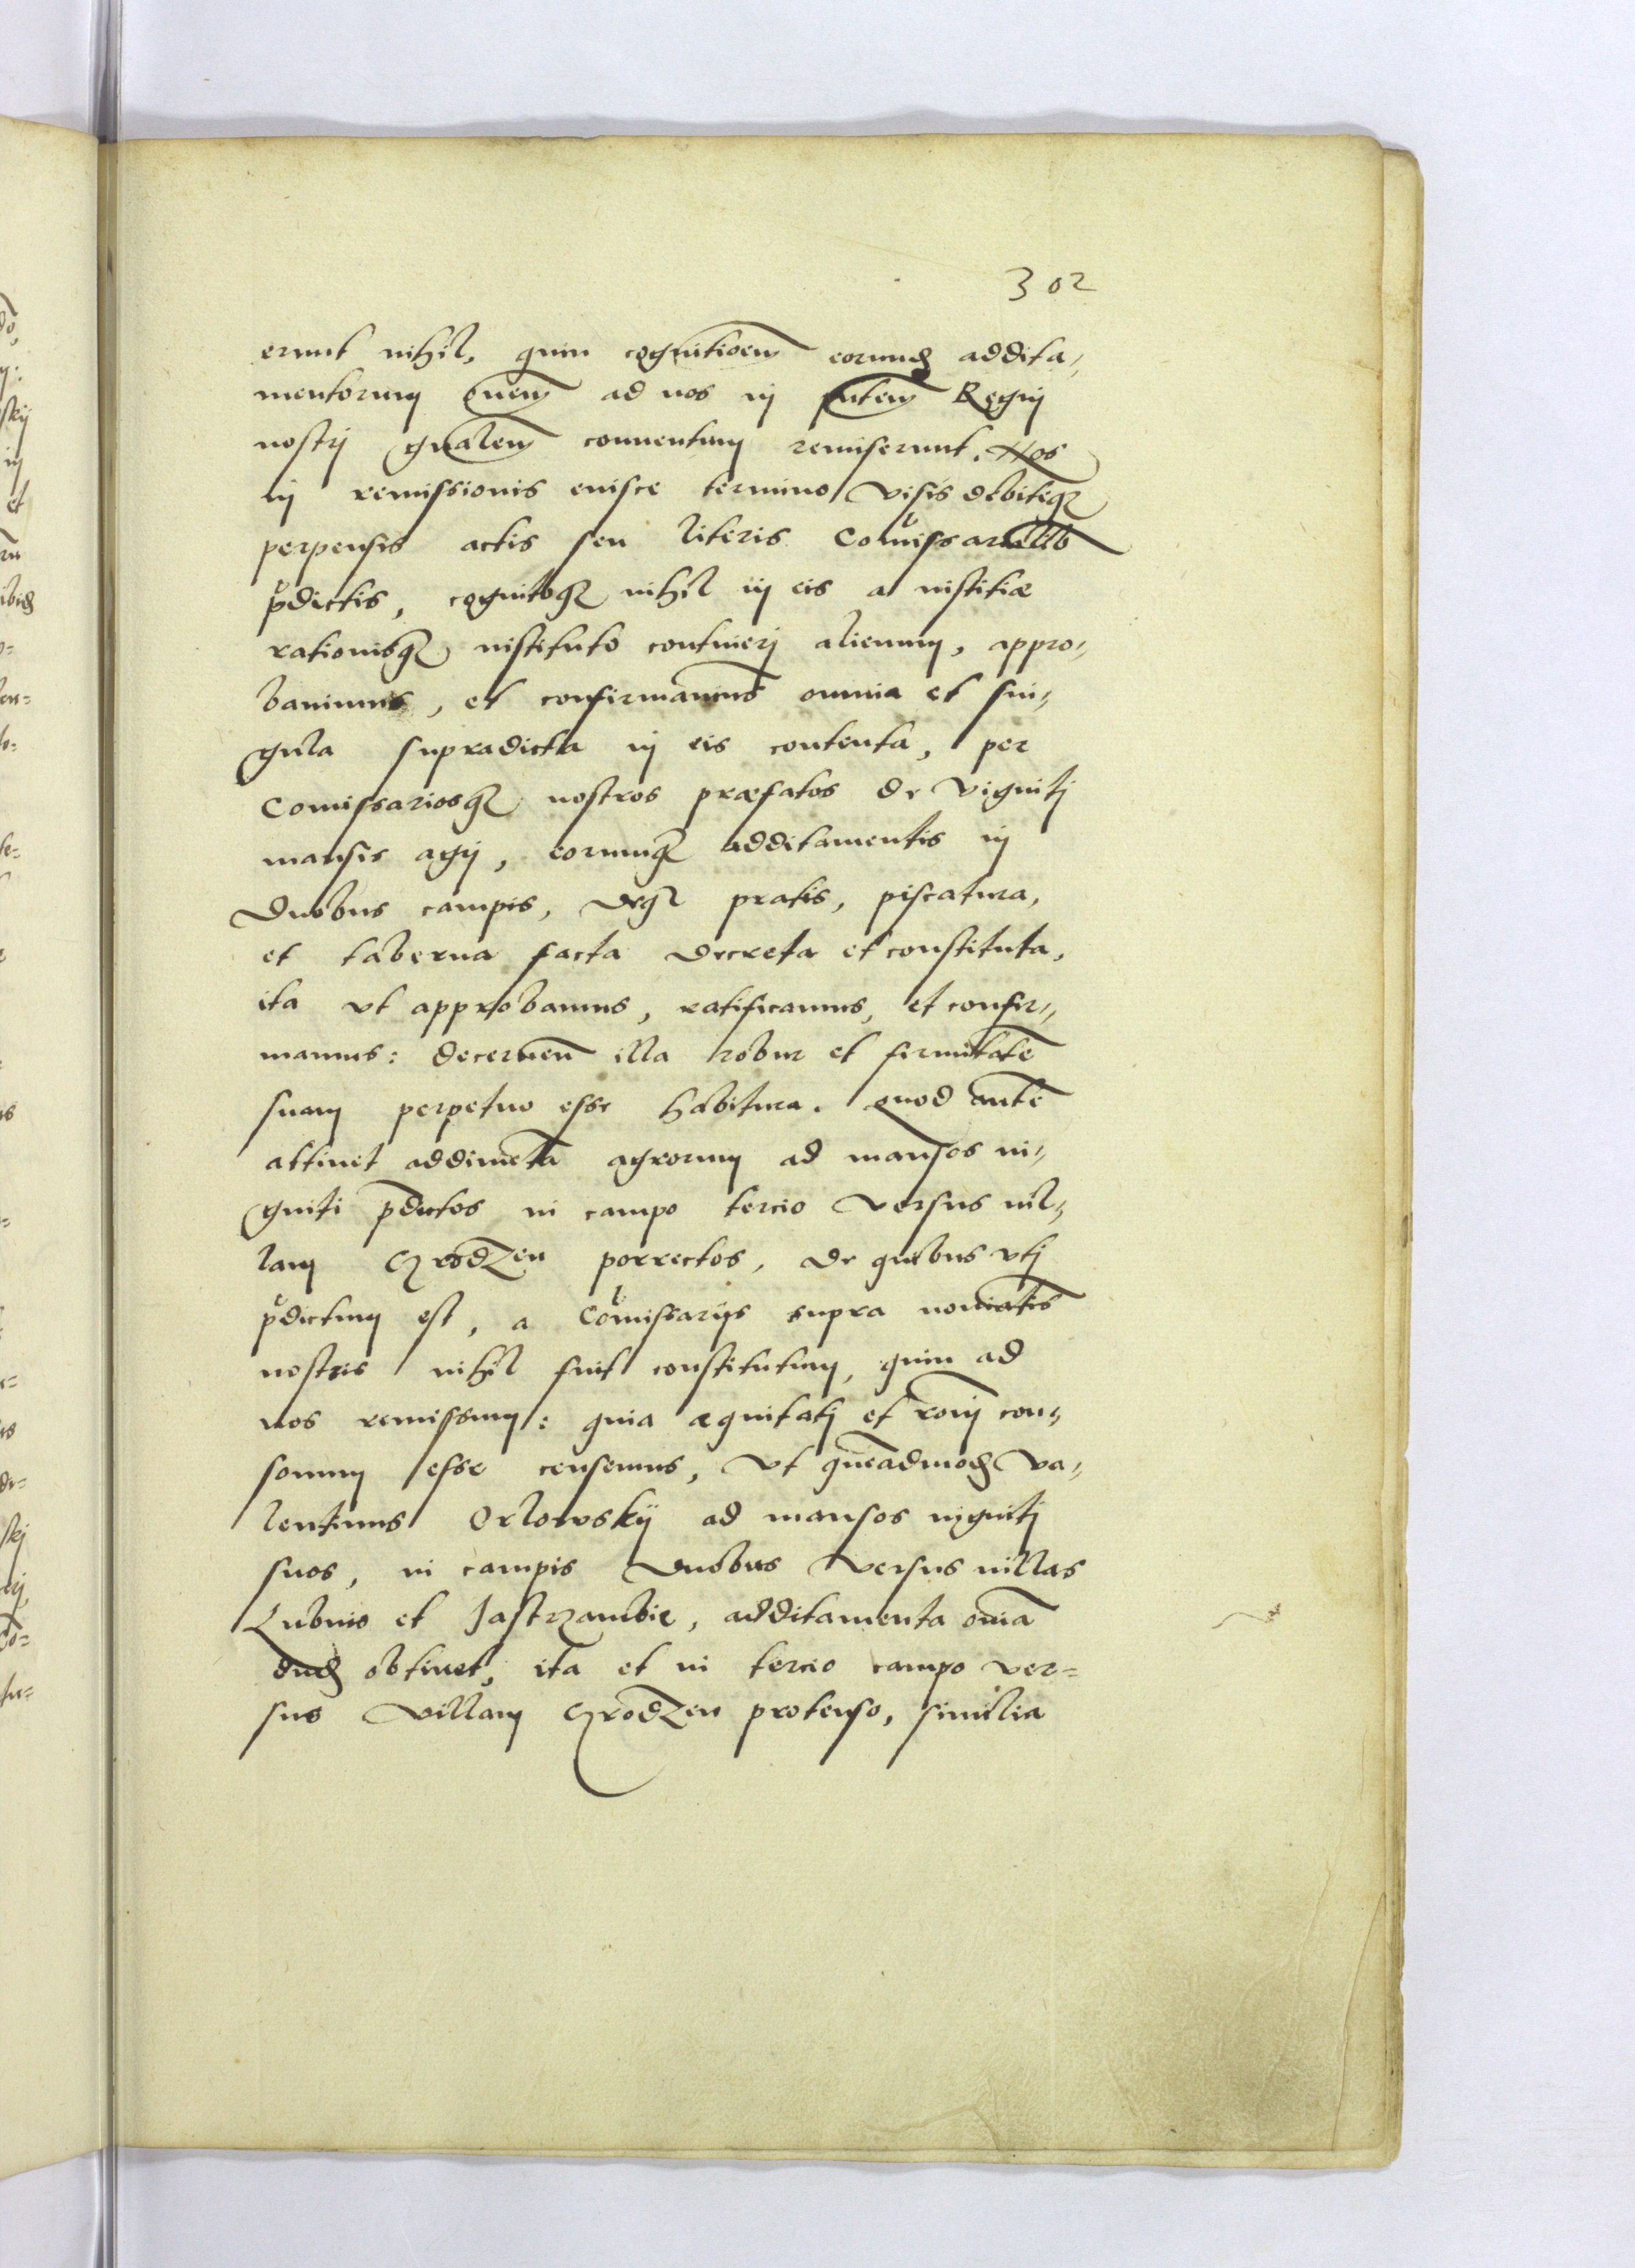 302
erunt nihil, quin cognitioem eorund addita,,
mentorum omem ad nos in pntem Regni
nostri gnalem conuentum remiserunt. Nos
in remissionis cuisce termino visis debiteq
perpensis actis seu literis Comissarialib
pdictis, cognitoq nihil in eis a iustitiæ
rationisq instituto contineri alienum, appro,,
bauimus, et confirmauimus omnia et sin,,
gula supradicta in eis contenta, per
Comissariosq nostros præfatos de viginti
mansis agri, eorumq additamentis in
duobus campis, deq pratis, piscatura,
et taberna facta decreta et constituta,
ita vt approbamus, ratificamus, et confir,,
mamus: decernen illa robur et firmitatē
suam perpetuo esse habitura. Quod autē
attinet addimeta agrorum ad mansos ui,,
ginti pdictos in campo tercio versus uil,,
lam Grodzen porrectos, de quibus vti
pdictum est, a Comissarijs supra nomiatis
nostris nihil fuit constitutum, quin ad
nos remissum: quia æquitati et roni con,,
sonum esse censemus, vt queadmod Va,,
lentinus Orlowskij ad mansos uiginti
suos, in campis duobus versus uillas
Lubnio et Jastrzambie, additamenta omia
dud obtinet, ita et in tercio campo ver=
sus villam Grodzen protenso, similia